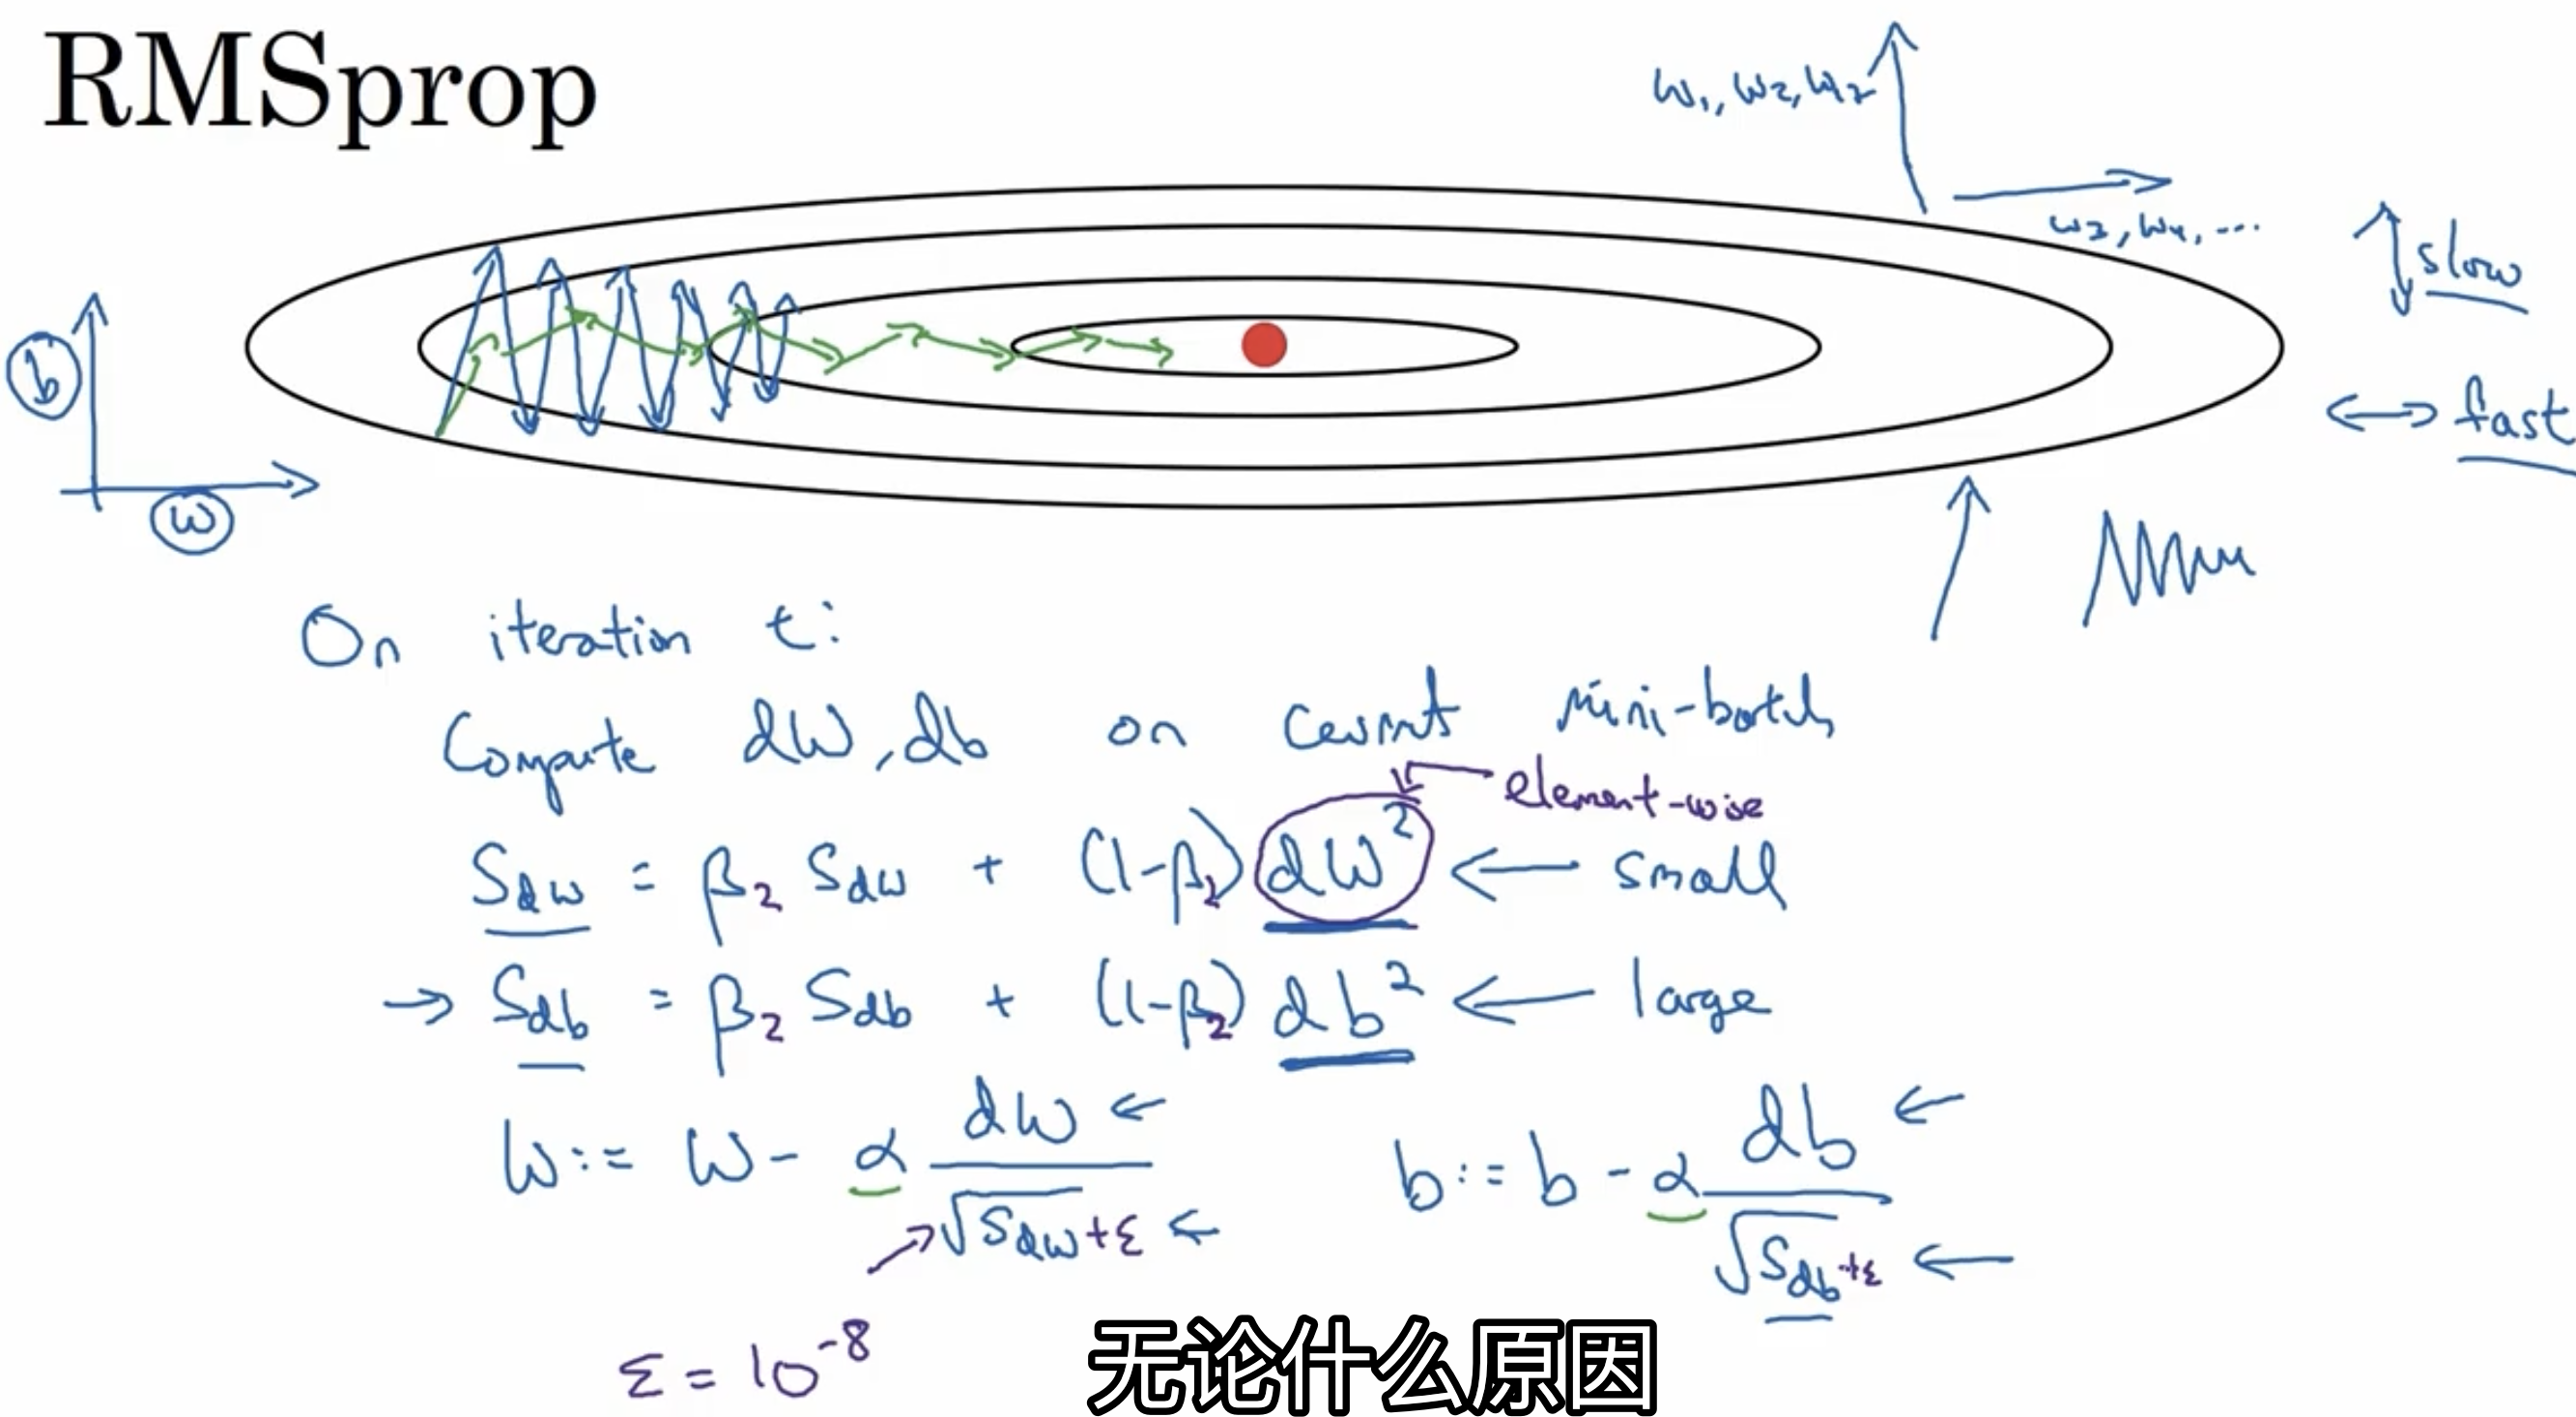 RMSprop
w₁, w₂, w₂
w₃, w₄, ...
slow
b
fast
w
On iteration t:
Compute dW, db on current mini-batch
element-wise
S_dw = β₂ S_dw + (1-β₂) dW² ← small
→ S_db = β₂ S_db + (1-β₂) db² ← large
W := W - α dW / √S_dw + ε ←
b := b - α db / √S_db + ε ←
ε = 10⁻⁸
无论什么原因